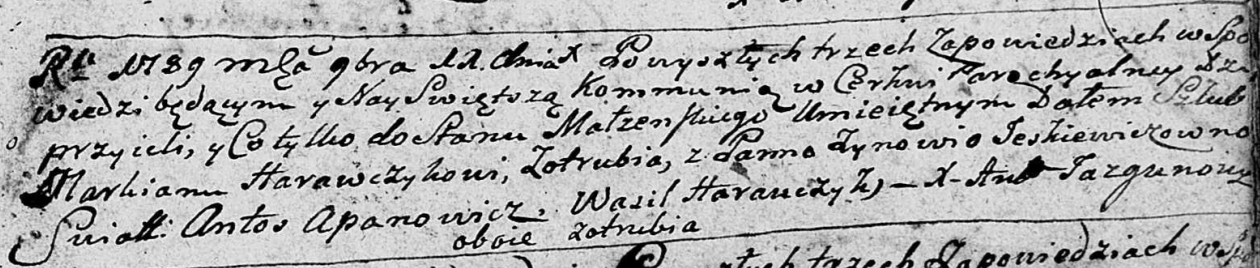 Rku 1789 mca 9bra 11. dnia Po wyszłych trzech Zapowiedziach w Spo
wiedzi będącym y Nay Swiętszą Kommunią w Cerkwi Parochyalney
przyieli, y Co tylko do Stanu Małzenskiego Umieiętnym Dałem Szlub
Markianu Harawczykowi, Zotrubia, z Panno Zynowio Jeskiewiczowno
Swiatk: Antos Apanowicz. Wasil Harawczyk, – X. Ant Jazgunowicz
oboie zotrubia
trzech Zapowiedziach w